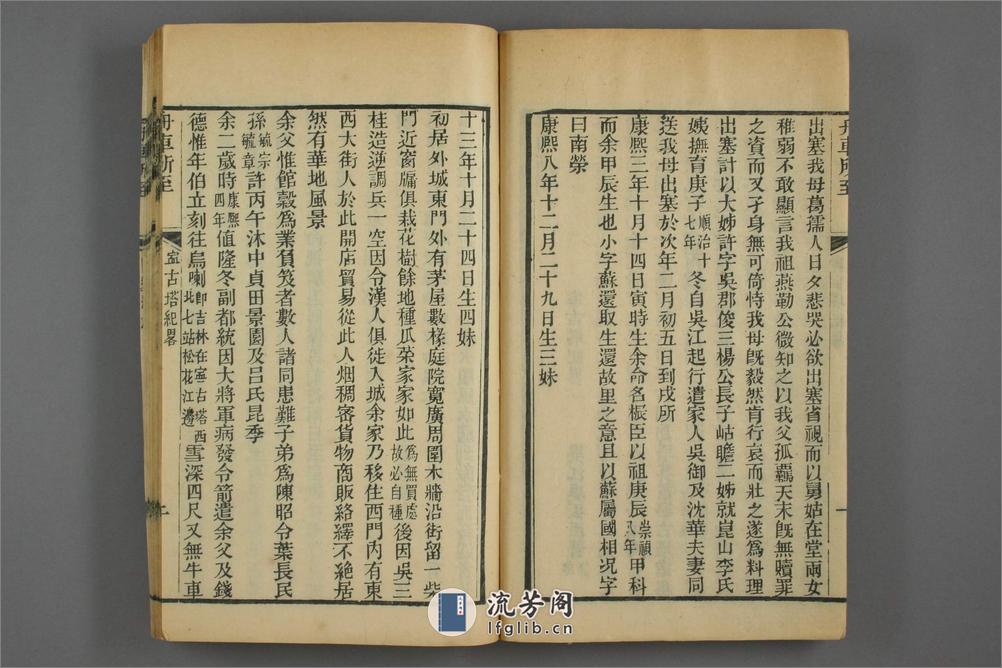 出塞我母葛孺人日夕悲哭必欲出塞省視而以舅姑在堂兩女
稚弱不敢顯言我祖燕勒公微知之以我父孤羈天末旣無贖罪
之資而又孑身無可倚恃我母旣毅然肯行哀而壯之遂爲料理
出塞計以大姊許字吳郡俊三楊公長子岵瞻二姊就崑山李氏
姨撫育庚子順治十七年冬自吳江起行遣家人吳御及沈華夫妻同
送我母出塞於次年二月初五日到戍所
康熙三年十月十四日寅時生余命名桭臣以祖庚辰崇禎八年甲科
而余甲辰生也小字蘇還取生還故里之意且以蘇屬國相况字
曰南榮
康熙八年十二月二十九日生三妹
舟車所至
十三年十月二十四日生四妹
初居外城東門外有茅屋數椽庭院寬廣周圍木牆沿街留一柴
門近窗牖俱栽花樹餘地種瓜菜家家如此爲無買處故必自種後因吳三
桂造逆調兵一空因令漢人俱徙入城余家乃移住西門內有東
西大街人於此開店貿易從此人烟稠密貨物商販絡繹不絕居
然有華地風景
余父惟館穀爲業負笈者數人諸同患難子弟爲陳昭令葉長民
孫毓宗毓章許丙午沐中貞田景園及呂氏昆季
余二歲時康熙四年值隆冬副都統因大將軍病發令箭遣余父及錢
德惟年伯立刻往烏喇卽吉林在寧古塔西北七站松花江邊雪深四尺又無牛車
舟車所至
寧古塔紀畧
流芳阁
lfglib.cn